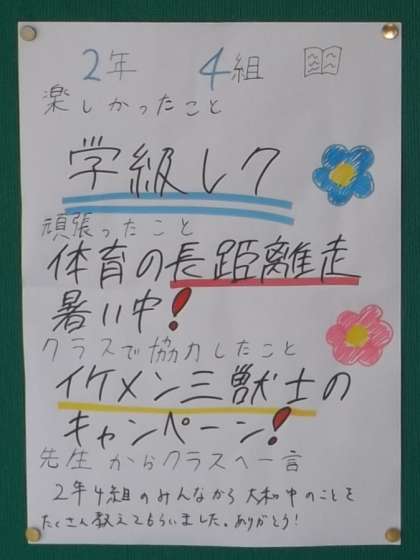 2年 4組
楽しかったこと
学級レク
頑張ったこと
体育の長距離走
暑い中!
クラスで協力したこと
イケメン三獣士の
キャンペーン!
先生からクラスへ一言
2年4組のみんなから大和中のことを
たくさん教えてもらいました。ありがとう!